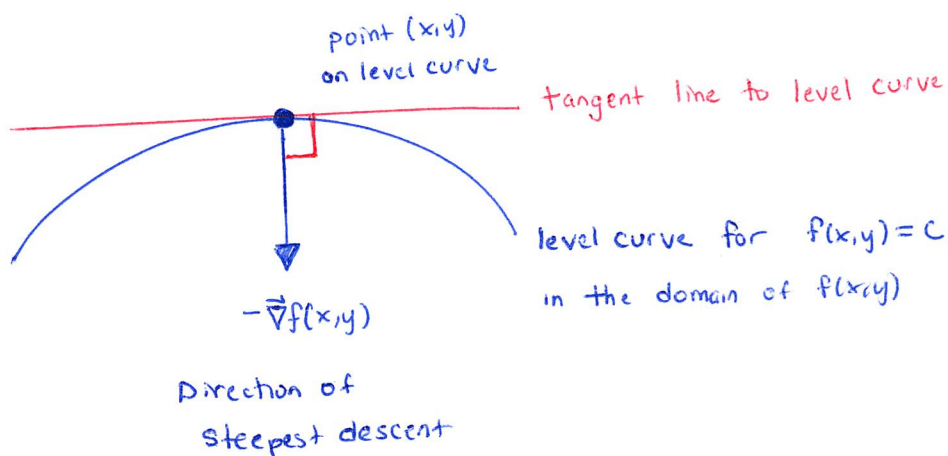 point (x,y)
on level curve
tangent line to level curve
level curve for f(x,y) = C
in the domain of f(x,y)
-∇⃗f(x,y)
Direction of
steepest descent